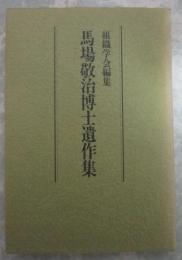 組織学会編集
馬場敬治博士遺作集